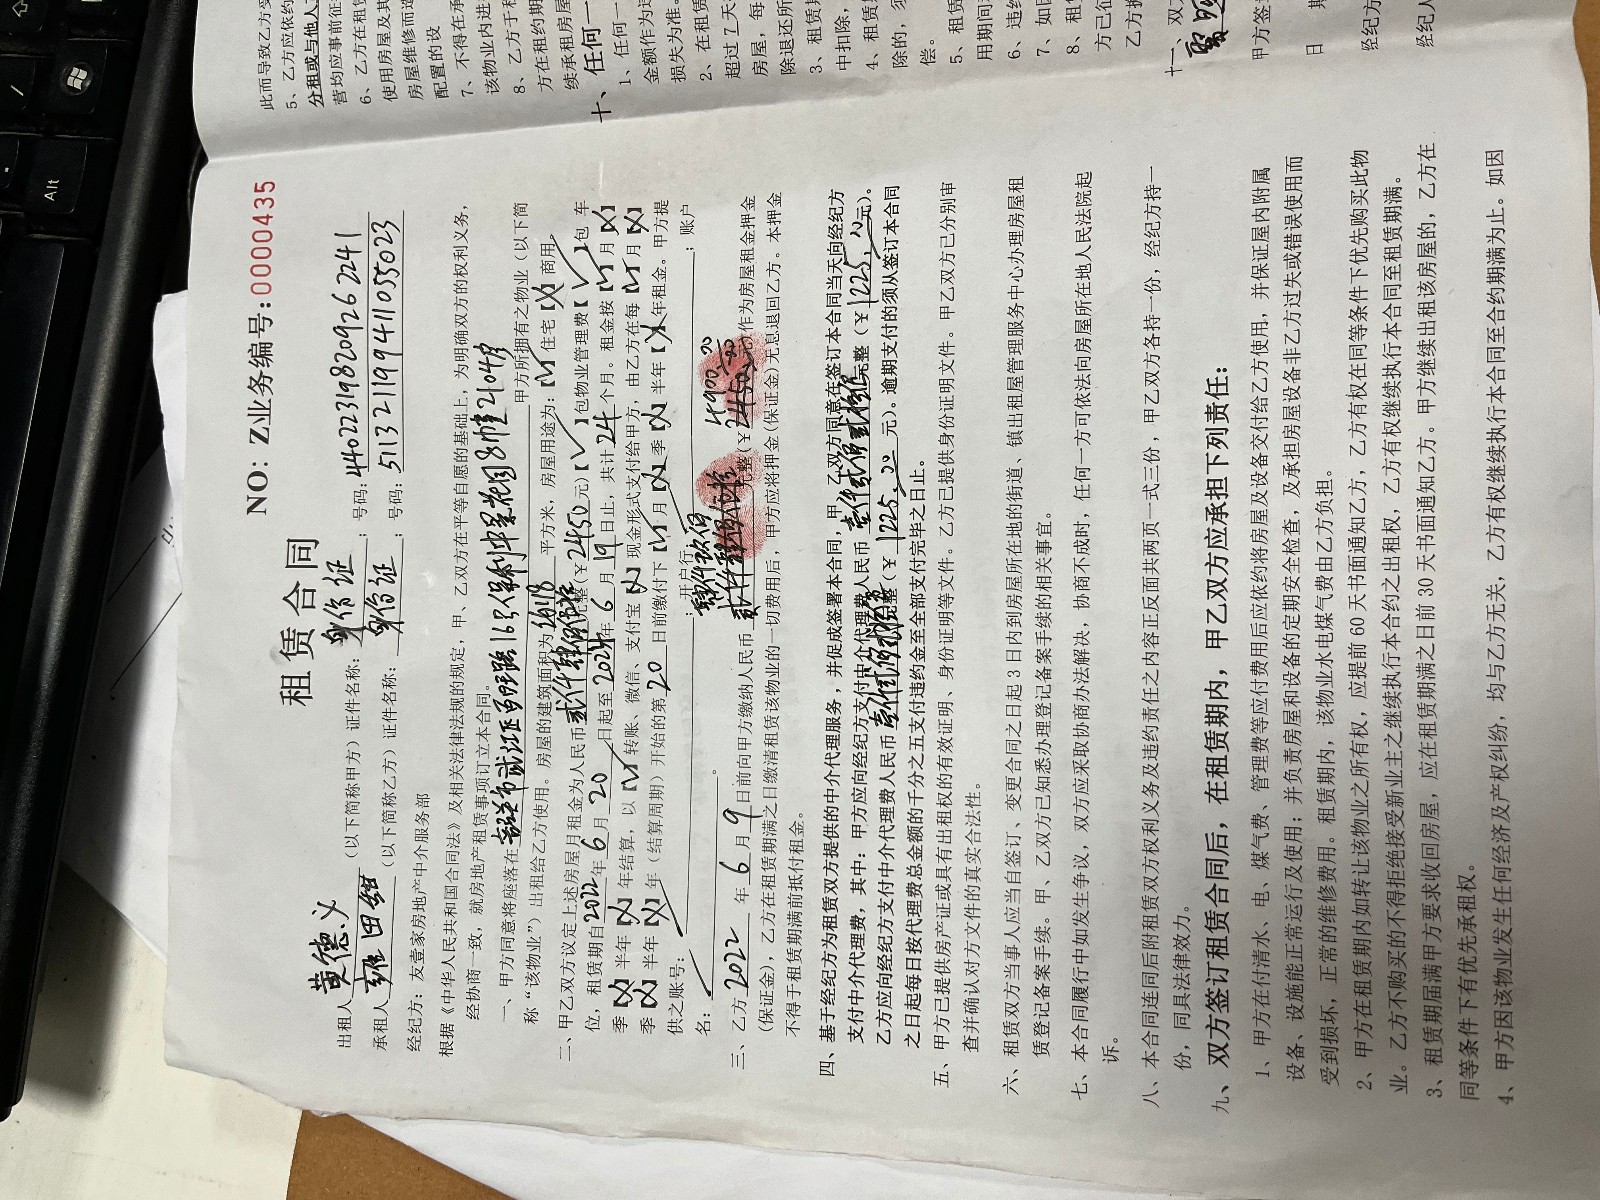 租赁合同
NO: Z业务编号:0000435
出租人 黄德义 (以下简称甲方) 证件名称: 身份证 ; 号码: 440223198209262241
承租人 (以下简称乙方) 证件名称: 身份证 ; 号码: 511321199411055023
经纪方: 友壹家房地产中介服务部
根据《中华人民共和国合同法》及相关法律法规的规定, 甲、乙双方在平等自愿的基础上, 为明确双方的权利义务,
经协商一致, 就房地产租赁事项订立本合同。
一、甲方同意将座落在 韶关市武江区百旺路16号保利中景花园8幢2104房 甲方所拥有之物业 (以下简
称“该物业”) 出租给乙方使用。房屋的建筑面积为 平方米, 房屋用途为:【✓】住宅【X】商用
二、甲乙双方议定上述房屋月租金为人民币 贰仟肆佰伍拾 元整 (¥ 2450 元)【✓】包物业管理费【✓】包车
位, 租赁期自 2022 年 6 月 20 日起至 2024 年 6 月 19 日止, 共计 24 个月。租金按【✓】月【X】
季【X】半年【X】年结算, 以【✓】转账、微信、支付宝【X】现金形式支付给甲方, 由乙方在每【✓】月【X】
季【X】半年【X】年 (结算周期) 开始的第 20 日前缴付下【✓】月【X】季【X】半年【X】年租金。甲方提
供之账号: ; 开户行: ; 账户
名: 。
肆仟玖佰 4900.00
三、乙方 2022 年 6 月 9 日前向甲方缴纳人民币 元整 (¥ 2450 元) 作为房屋租金押金
(保证金), 乙方在租赁期满之日缴清租赁该物业的一切费用后, 甲方应将押金 (保证金) 无息退回乙方。本押金
不得于租赁期满前抵付租金。
四、基于经纪方为租赁双方提供的中介代理服务, 并促成签署本合同, 甲、乙双方同意在签订本合同当天向经纪方
支付中介代理费, 其中: 甲方应向经纪方支付中介代理费人民币 壹仟贰佰贰拾伍 元整 (¥ 1225.00 元)。
乙方应向经纪方支付中介代理费人民币 壹仟贰佰贰拾伍 元整 (¥ 1225.00 元)。逾期支付的须从签订本合同
之日起每日按代理费总金额的千分之五支付违约金至全部支付完毕之日止。
五、甲方已提供房产证或具有出租权的有效证明、身份证明等文件。乙方已提供身份证明文件。甲乙双方已分别审
查并确认对方文件的真实合法性。
六、租赁双方当事人应当自签订、变更合同之日起 3 日内到房屋所在地的街道、镇出租屋管理服务中心办理房屋租
赁登记备案手续。甲、乙双方已知悉办理登记备案手续的相关事宜。
七、本合同履行中如发生争议, 双方应采取协商办法解决, 协商不成时, 任何一方可依法向房屋所在地人民法院起
诉。
八、本合同连同后附租赁双方权利义务及违约责任之内容正反面共两页一式三份, 甲乙双方各持一份, 经纪方持一
份, 同具法律效力。
九、双方签订租赁合同后, 在租赁期内, 甲乙双方应承担下列责任:
1、甲方在付清水、电、煤气费、管理费等应付费用后应依约将房屋及设备交付给乙方使用, 并保证屋内附属
设备、设施能正常运行及使用; 并负责房屋和设备的定期安全检查, 及承担房屋设备非乙方过失或错误使用而
受到损坏, 正常的维修费用。租赁期内, 该物业水电煤气费由乙方负担。
2、甲方在租赁期内如转让该物业之所有权, 应提前 60 天书面通知乙方, 乙方有权在同等条件下优先购买此物
业。乙方不购买的不得拒绝接受新业主之继续执行本合约之出租权, 乙方有权继续执行本合同至租赁期满。
3、租赁期届满甲方要求收回房屋, 应在租赁期满之日前 30 天书面通知乙方。甲方继续出租该房屋的, 乙方在
同等条件下有优先承租权。
4、甲方因该物业发生任何经济及产权纠纷, 均与乙方无关, 乙方有权继续执行本合同至合约期满为止。如因
此而导致乙方受
5、乙方应依约
分租或与他人
营均应事前征
6、乙方在租赁
使用房屋及其
房屋维修而造
配置的设
7、不得在承
该物业内进
8、乙方于租
方在租约期
续承租房屋
十、任何一
1、任何一
金额作为违
损失为准。
2、在租赁
超过 7 天
房屋, 每
除退还所
3、租赁期
中扣除,
4、租赁
除的, 须
偿。
5、租赁
用期间
6、违约
7、如因
8、租
方已征
乙方
十一、双方
甲方签
日 期
经纪方
经纪人
Alt